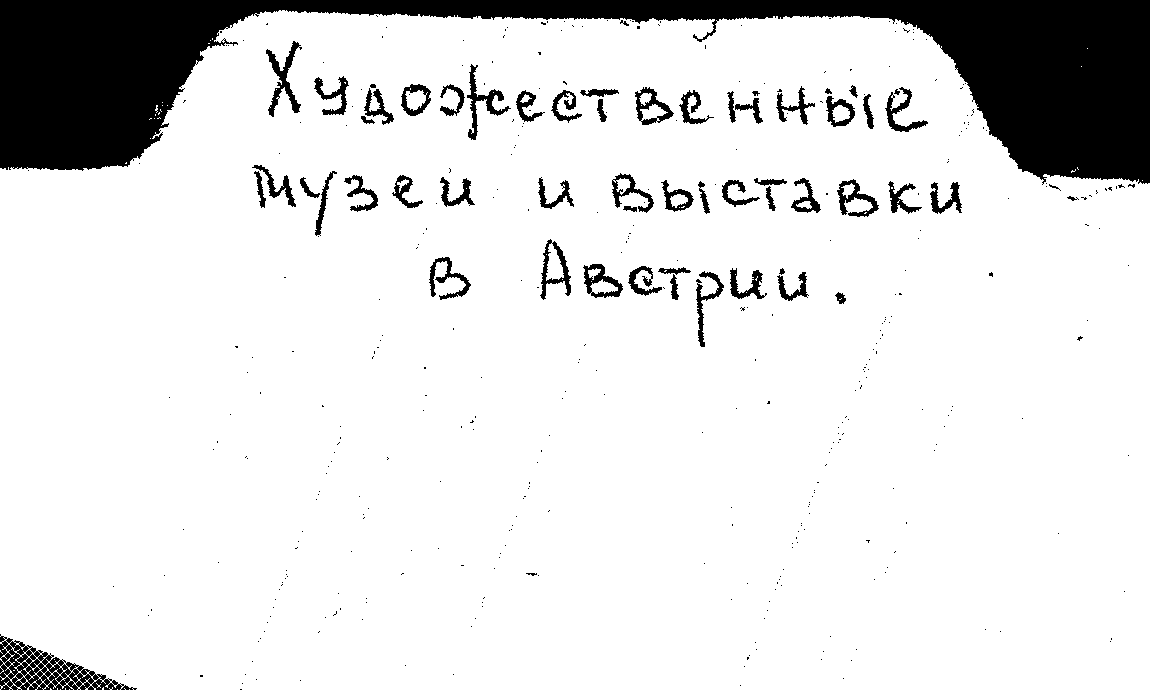 Художественные
музеи и выставки
в Австрии.